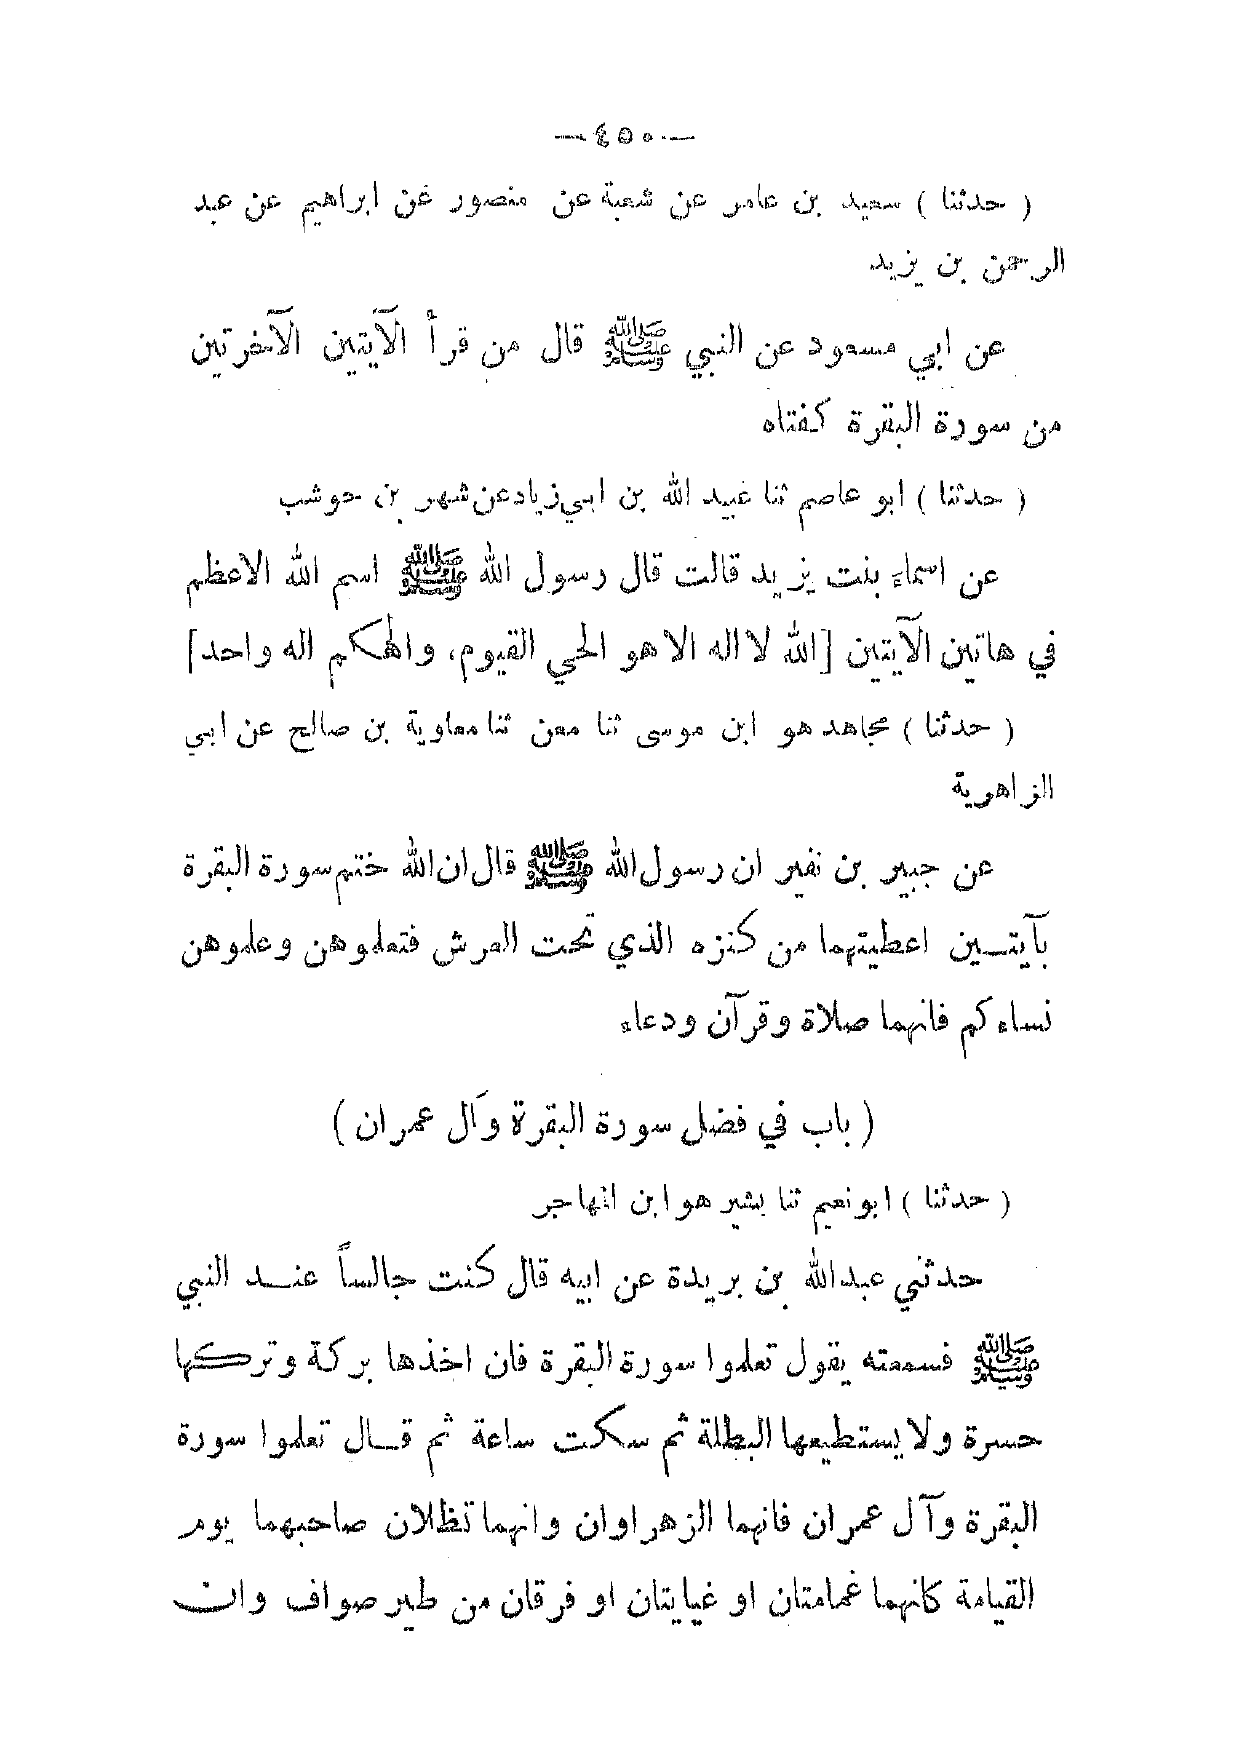 — ٤٥٠ —
( حدثنا ) سعيد بن عامر عن شعبة عن منصور عن ابراهيم عن عبد
الرحمن بن يزيد
عن ابي مسعود عن النبي ﷺ قال من قرأ الآيتين الآخرتين
من سورة البقرة كفتاه
( حدثنا ) ابو عاصم ثنا عبيد الله بن ابي زياد عن شهر بن حوشب
عن اسماء بنت يزيد قالت قال رسول الله ﷺ اسم الله الاعظم
في هاتين الآيتين [ الله لا اله الا هو الحي القيوم، والهكم اله واحد ]
( حدثنا ) مجاهد هو ابن موسى ثنا معن ثنا معاوية بن صالح عن ابي
الزاهرية
عن جبير بن نفير ان رسول الله ﷺ قال ان الله ختم سورة البقرة
بآيتين اعطيتهما من كنزه الذي تحت العرش فتعلموهن وعلموهن
نساءكم فانهما صلاة وقرآن ودعاء
( باب في فضل سورة البقرة وآل عمران )
( حدثنا ) ابو نعيم ثنا بشير هو ابن المهاجر
حدثني عبد الله بن بريدة عن ابيه قال كنت جالساً عند النبي
ﷺ فسمعته يقول تعلموا سورة البقرة فان اخذها بركة وتركها
حسرة ولا يستطيعها البطلة ثم سكت ساعة ثم قال تعلموا سورة
البقرة وآل عمران فانهما الزهراوان وانهما تظلان صاحبهما يوم
القيامة كانهما غمامتان او غيايتان او فرقان من طير صواف وان